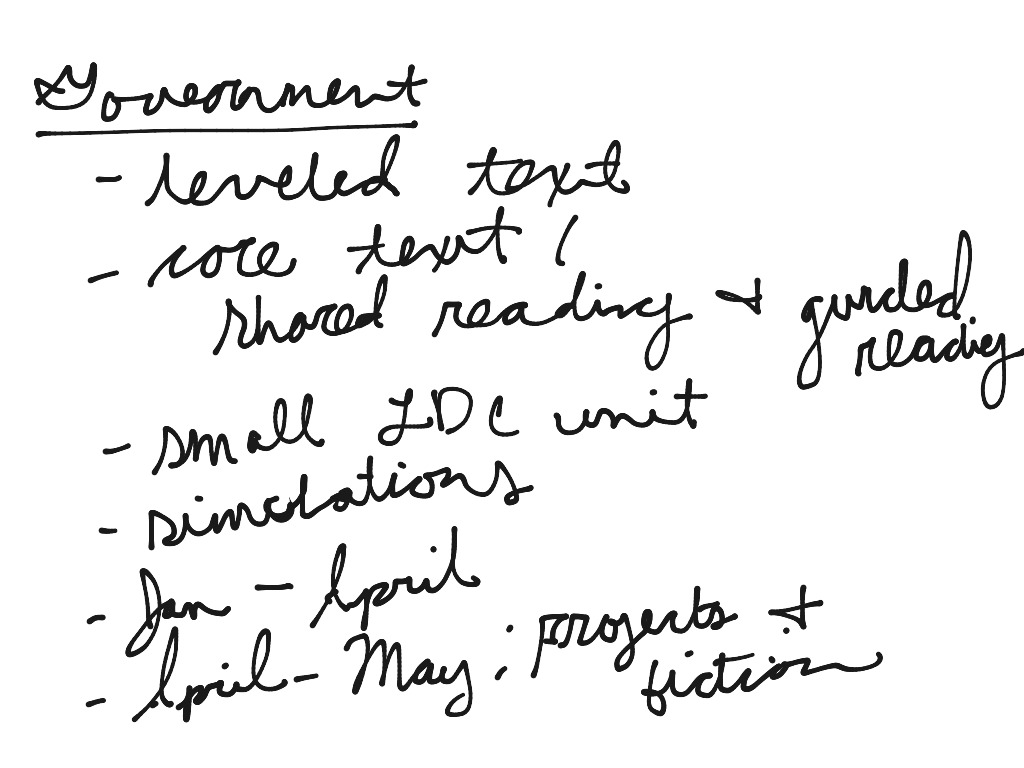 Government
- leveled text
- core text /
shared reading + guided
reading
- small LDC unit
- simulations
- Jan - April
- April - May: projects +
fiction